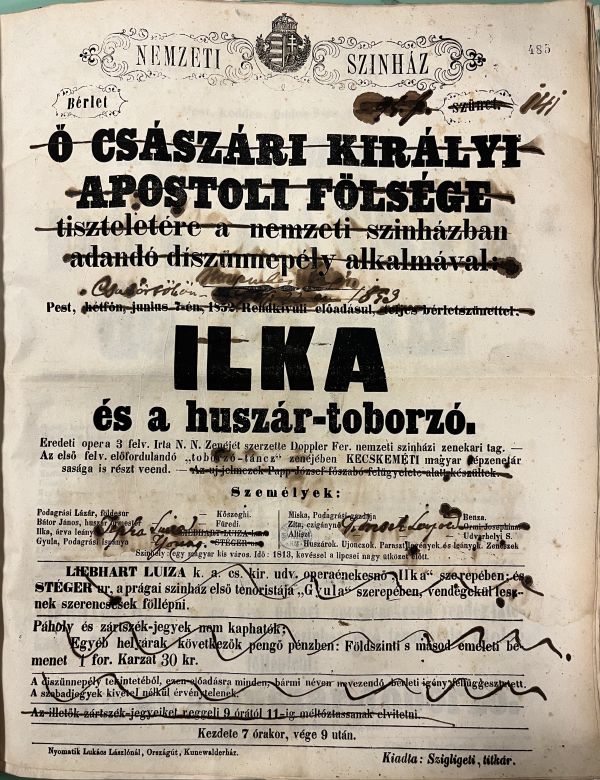 485
NEMZETI SZINHÁZ
Bérlet szünet.
Ő CSÁSZÁRI KIRÁLYI
APOSTOLI FÖLSÉGE
tiszteletére a nemzeti szinházban
adandó díszünnepély alkalmával:
Csütörtökön 1853
Pest, hétfőn, junius 7-én, 1852. Rendkivüli előadásul, teljes bérletszünettel:
ILKA
és a huszár-toborzó.
Eredeti opera 3 felv. Irta N. N. Zenéjét szerzette Doppler Fer. nemzeti szinházi zenekari tag. —
Az első felv. előfordulandó „toborzó-táncz” zenéjében KECSKEMÉTI magyar népzenetár
sasága is részt veend. — Az uj jelmezek Papp József főszabó felügyelete alatt készültek.
Személyek:
Podagrási Lázár, földesur — Kőszeghi.
Bátor János, huszár őrmester — Füredi.
Ilka, árva leány — LIEBHART LUIZA k. a.
Gyula, Podagrási ispánya — STÉGER
Miska, Podagrási gazdája — Benza.
Zita, czigánynő — Ormi Josephine
Altiszt — Udvarhelyi S.
Huszárok. Ujonczok. Parasztlegények és leányok. Zenészek
Szinhely: egy magyar kis város. Idő: 1813, kevéssel a lipcsei nagy ütközet előtt.
LIEBHART LUIZA k. a. cs. kir. udv. operaénekesnő „Ilka” szerepében; és
STÉGER ur, a prágai szinház első tenoristája „Gyula” szerepében, vendégekül lesz-
nek szerencsések föllépni.
Páholy és zártszék-jegyek nem kaphatók;
Egyéb helyárak következők pengő pénzben: Földszinti s másod emeleti be
menet 1 for. Karzat 30 kr.
A díszünnepély tekintetéből, ezen előadásra minden, bármi néven nevezendő, bérleti igény felfüggesztetett.
A szabadjegyek kivétel nélkül érvénytelenek.
Az illetők zártszék-jegyeiket reggeli 9 órától 11-ig méltóztassanak elvitetni.
Kezdete 7 órakor, vége 9 után.
Nyomatik Lukács Lászlónál, Országút, Kunewalderház.
Kiadta: Szigligeti, titkár.